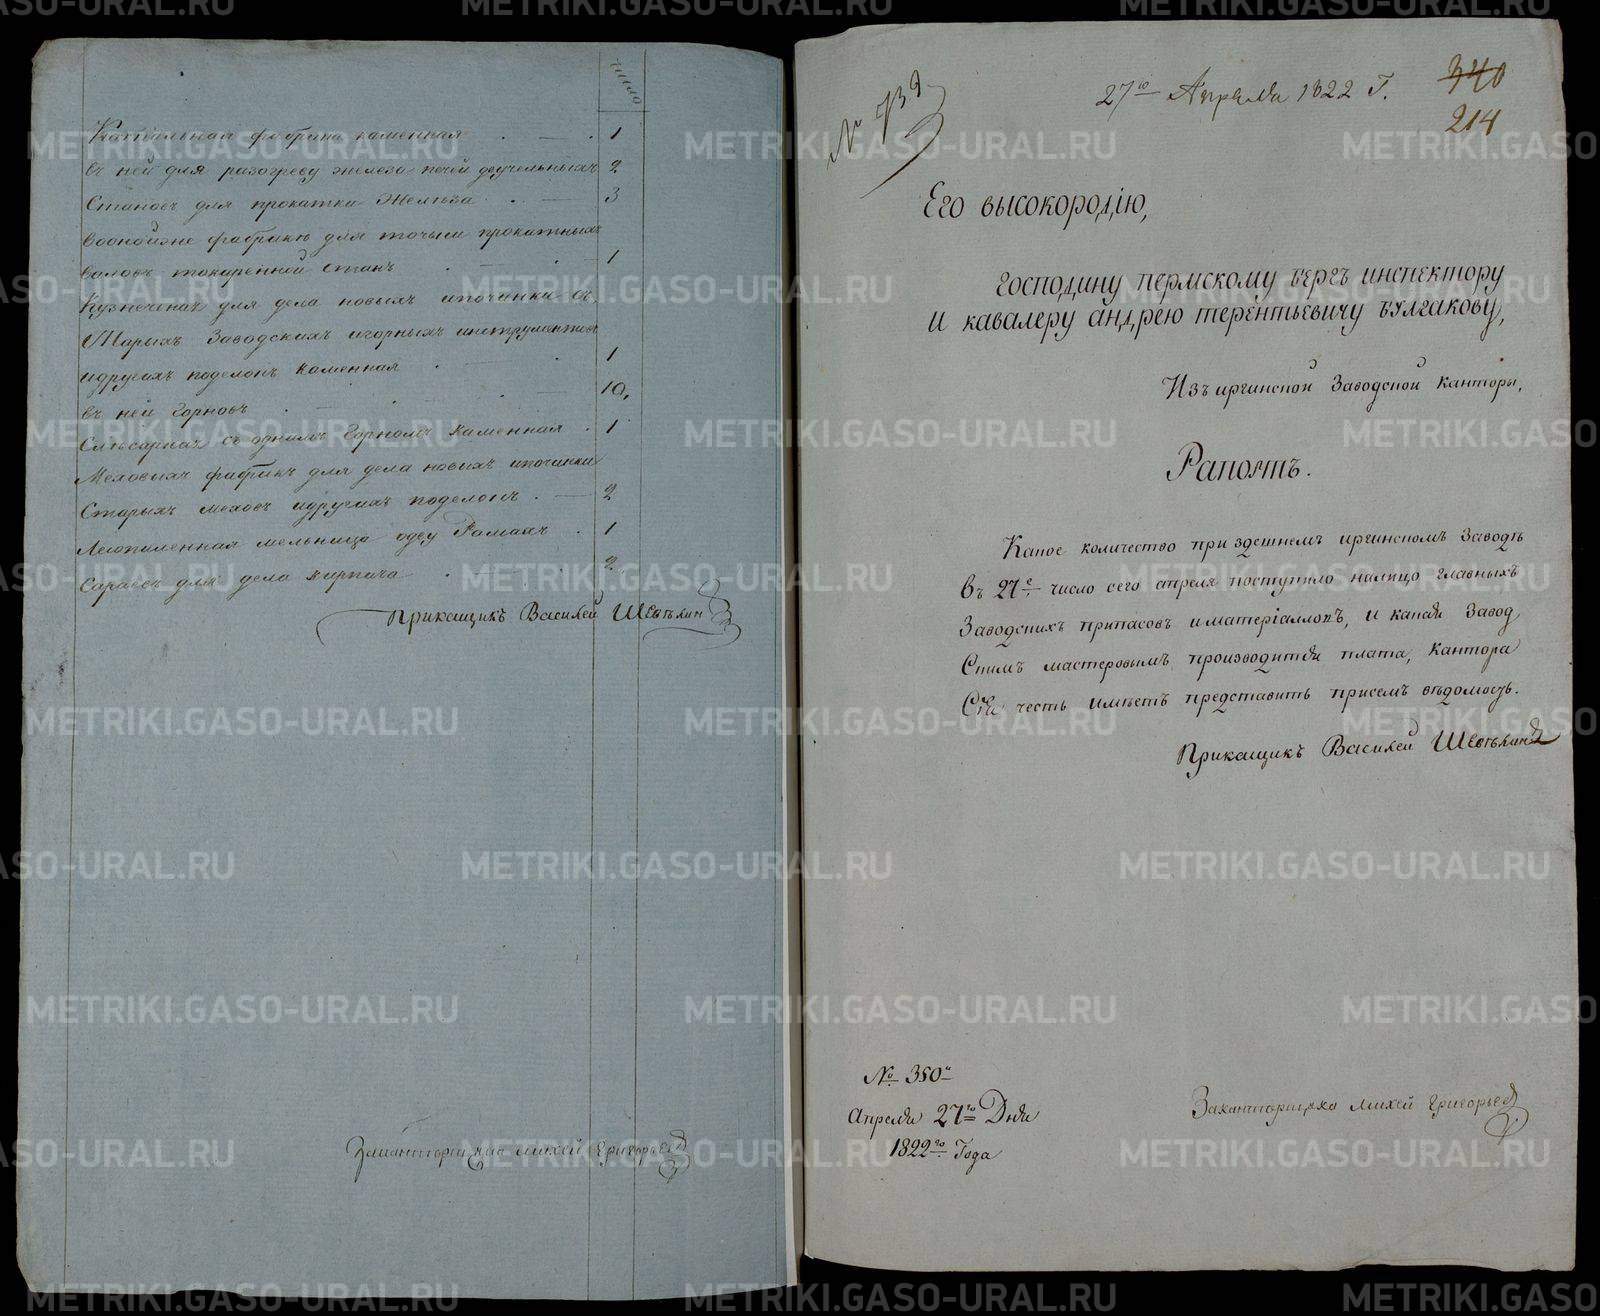 число
Катальная фабрика каменная 1
въ ней для разогреву железа печей двучельныхъ 2
Становъ для прокатки Железа 3
воонойже фабрике для точьи прокатныхъ
валовъ токаренной станъ 1
Кузнеченая для дела новыхъ ипочинки с
тарыхъ Заводскихъ игорныхъ инструментовъ
идругихъ поделокъ каменная 1
въ ней горновъ 10,
Слесарная съ однимъ горномъ каменная 1
Меховыхъ фабрикъ для дела новыхъ ипочинки
Старыхъ меховъ идругихъ поделокъ 2
Лесопиленная мельница одву Рамахъ 1
Сараевъ для дела кирпича 2
Прикащикъ Василей Шевелин
Заканторщика михей Григорьев
№ 739
27го Апреля 1822 Г.
340
214
Его высокородію,
господину пермскому бергъ инспектору
и кавалеру андрею терентьевичу булгакову,
Изъ иргинской Заводской канторы,
Рапортъ.
Какое количество при здешнемъ иргинскомъ Заводѣ
въ 27е число сего апреля поступило налицо главныхъ
Заводскихъ припасовъ иматеріалловъ, и какая Завод
Скимъ мастеровымъ производится плата, кантора
Сія честь имѣетъ представить присемъ вѣдомость.
Прикащикъ Василей Шевелин
№ 350й
Апреля 27го Дня
1822го Года
Заканторщика михей Григорьев